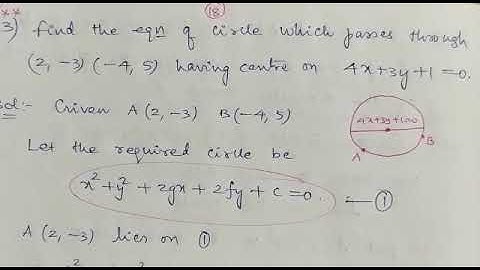 ** (18)
3) find the eqn of circle which passes through
(2, -3) (-4, 5) having centre on 4x+3y+1=0.
Sol:- Given A(2, -3) B(-4, 5)
4x+3y+1=0
A B
Let the required circle be
x²+y²+2gx+2fy+c=0. — ①
A(2, -3) lies on ①